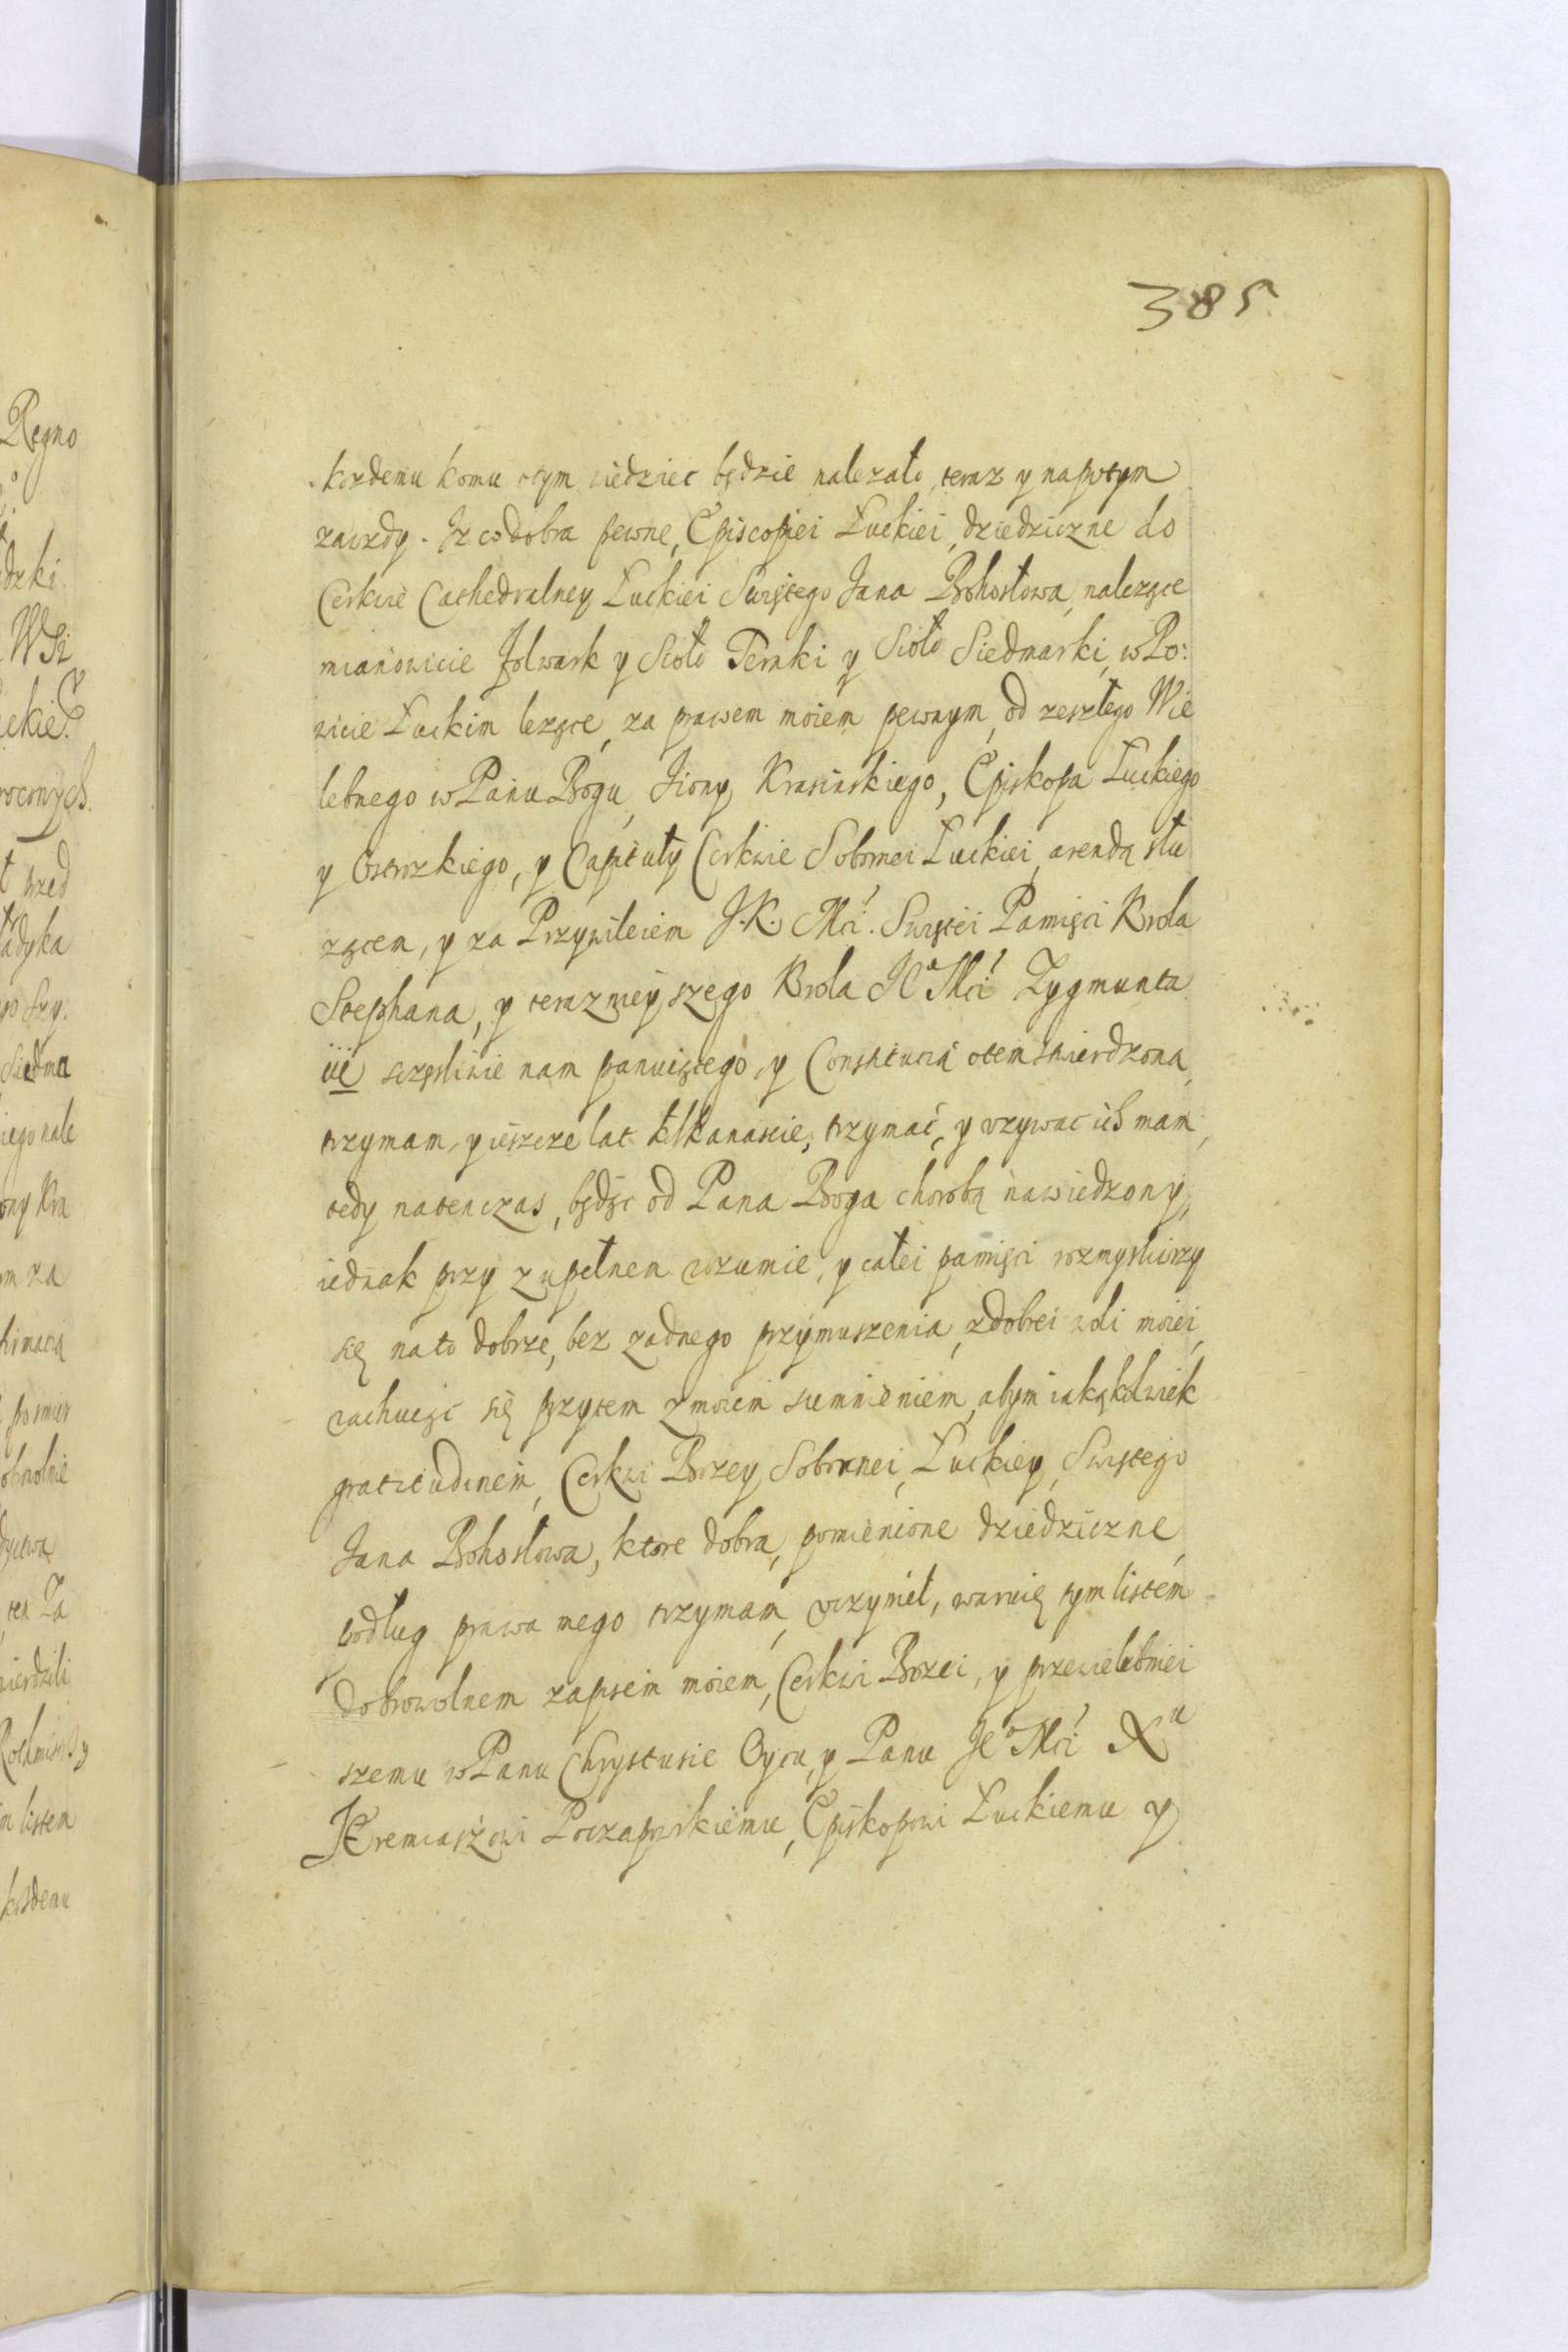 385
kozdemu komu otym wiedziec będzie nalezało, teraz y napotym
zawzdy. Iz co dobra pewne, Episcopiei Łuckiei, dziedziczne do
Cerkwie Cathedralney Łuckiei Swiętego Jana Bohosłowa, nalezące
mianowicie folwark y Sioło Teraki y Sioło Siedmarki, w Po:
wicie Łuckim lezące, za prawem moiem pewnym, od zeszłego Wie
lebnego w Panu Bogu, Jiony Krasinskiego, Episkopa Łuckiego
y Ostrozkiego, y Capituły Cerkwie Sobornei Łuckiei, arendą słu
zącem, y za Przywileiem J.K. Mci. Swiętei Pamięci Krola
Stephana, y teraznieyszego Krola JeMci Zygmunta
iii sczęsliwie nam panuiącego, y Constitucią otem stwierdzoną,
trzymam, y ieszcze lat kilkanascie, trzymać, y vzywac ich mam,
tedy natenczas, będąc od Pana Boga chorobą nawiedzony,
iednak przy zupełnem rozumie, y całei pamięci rozmysliwszy
się na to dobrze, bez zadnego przymuszenia, z dobrei woli moiei,
rachuiąc się przytem z moiem sumnieniem, abym iakąkolwiek
gratitudinem, Cerkwi Bozey, Sobornei, Łuckiey, Swiętego
Jana Bohosłowa, ktore dobra, pomienione dziedziczne
podług prawa mego trzymam, vczynieł, waruię tym listem
dobrowolnem zapisem moiem, Cerkwi Bozei, y przewielebniei
szemu w Panu Chrystusie Oycu, y Panu Je Mci Xu
Jeremiaszowi Poczapowskiemu, Episkopowi Łuckiemu y
Regno
dzki
ckiei
przed
adyka
Siedma
iego nale
ony Kra
m za
wierdzili
m listem
kozdemu